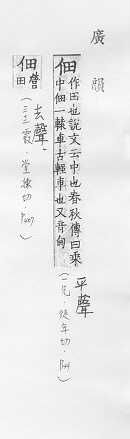 廣韻
佃 作田也說文云中也春秋傳曰乘
中佃一轅車古輕車也又音甸
平聲
(一先．徒年切．P.134)
佃 營田
去聲
(三十二霰．堂練切．P.407)